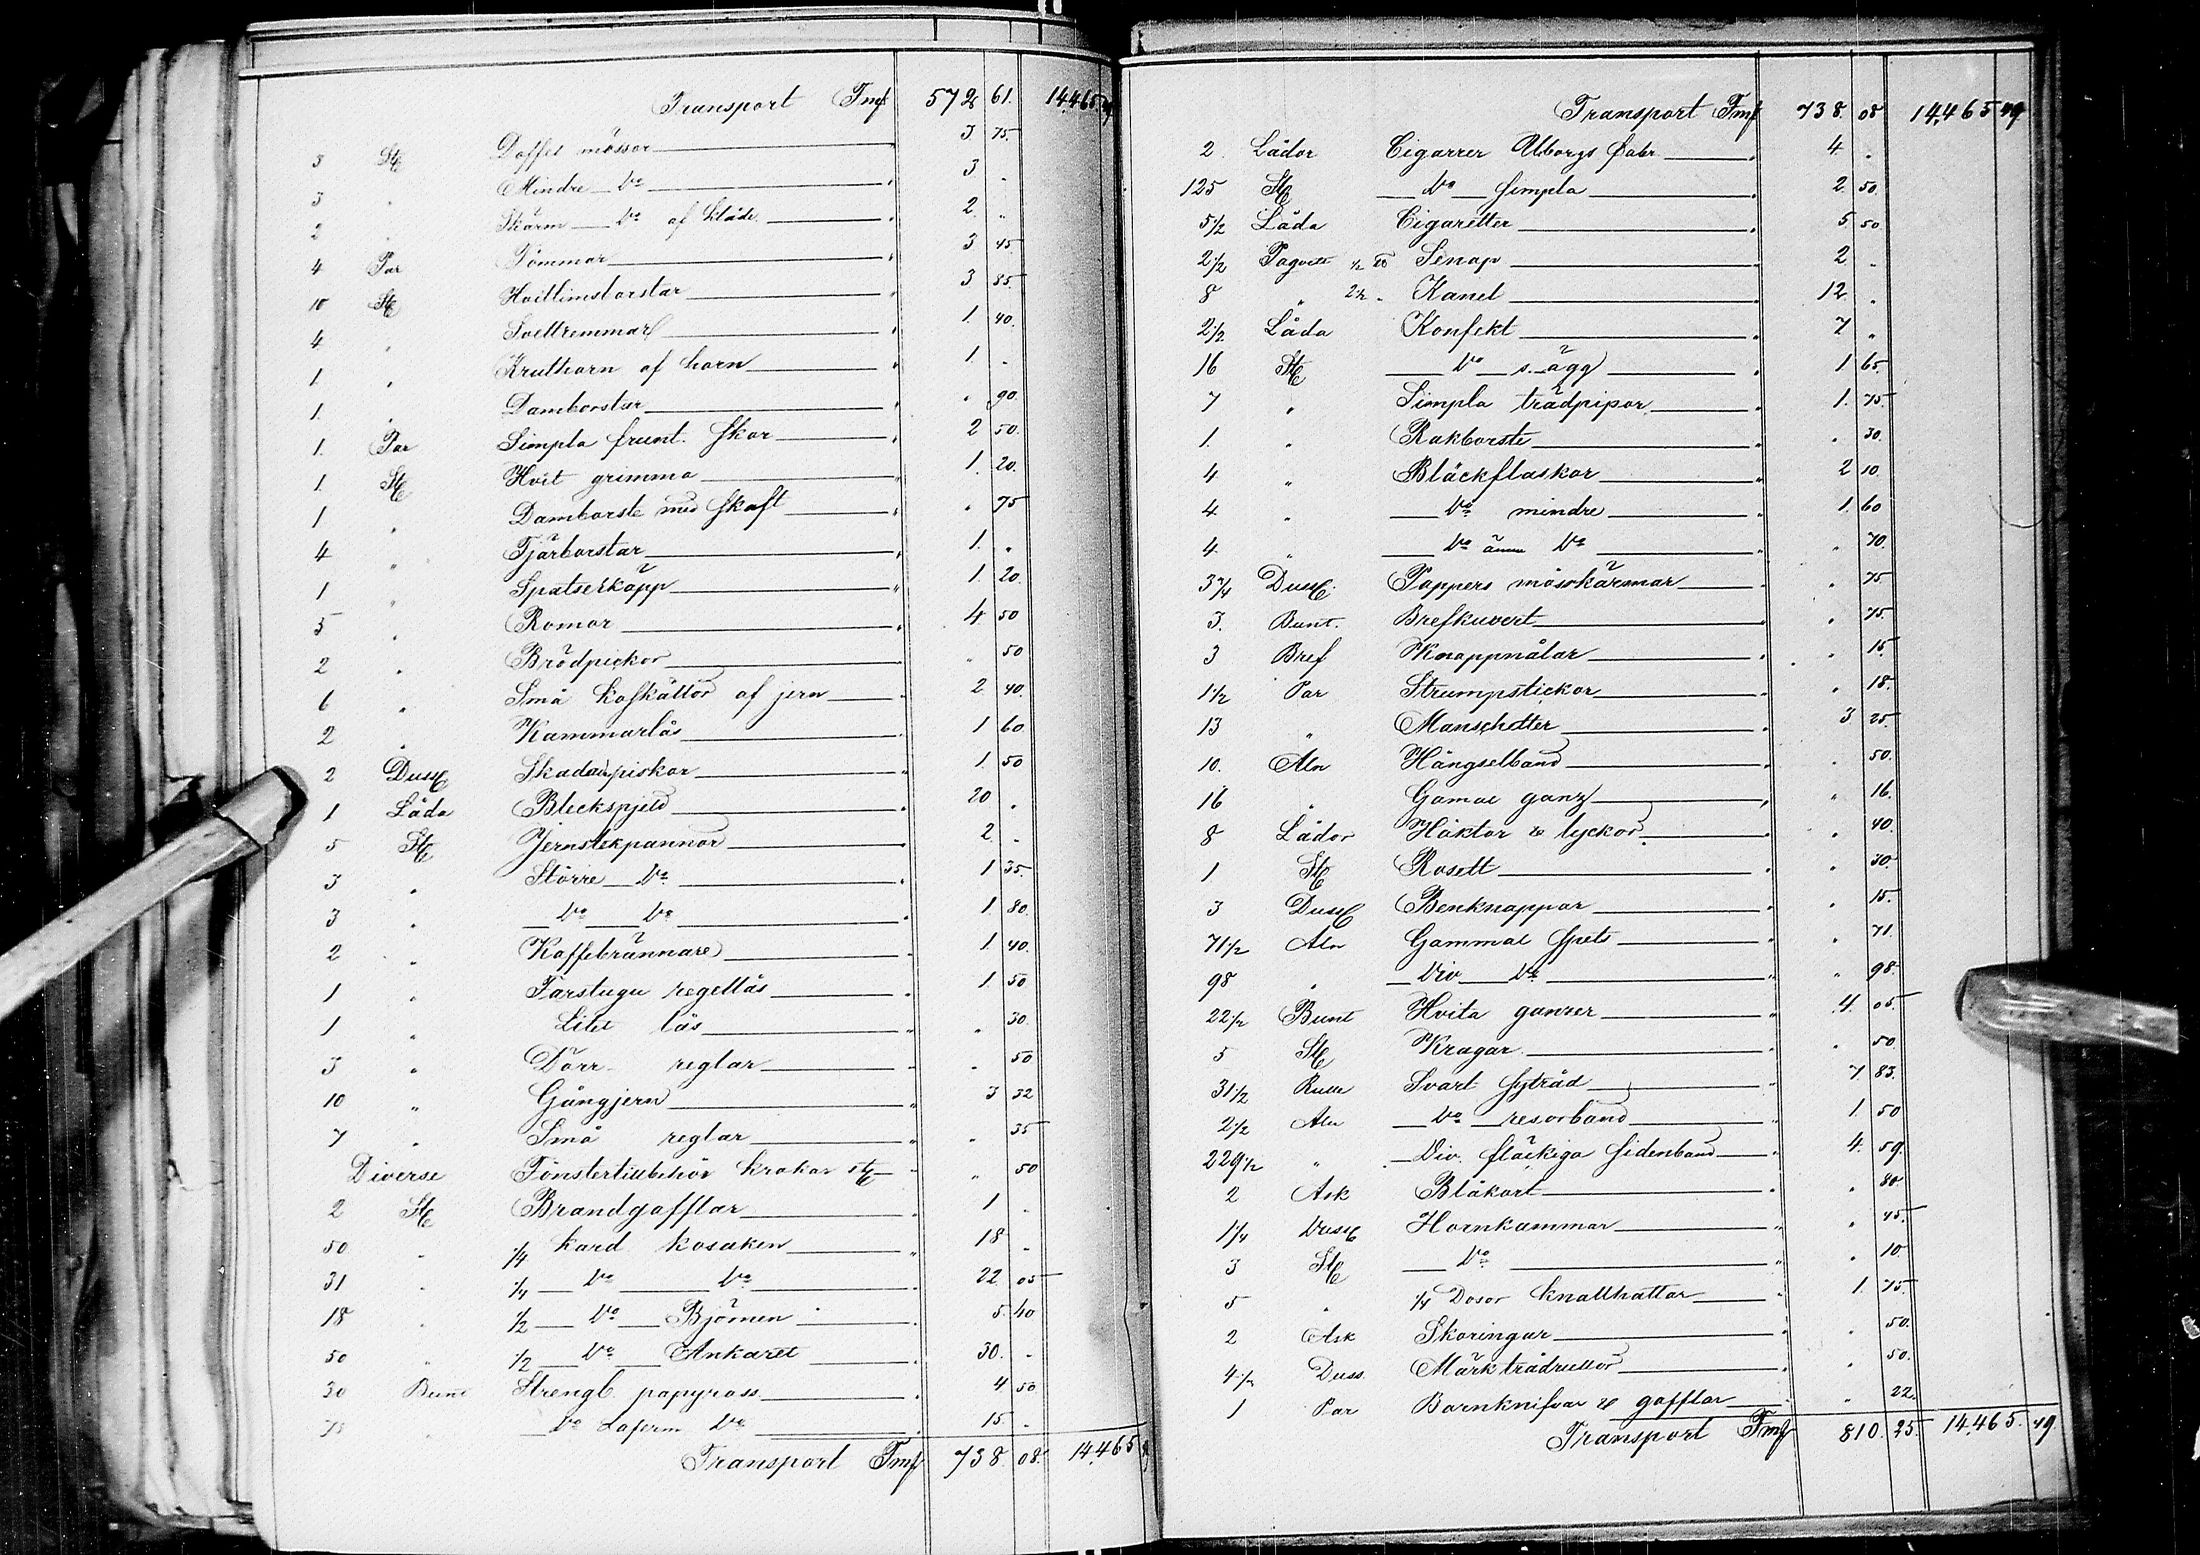 Transport Fmf 572 61. 14,465 49
3 St Doffel mössor 3 75
3 " Mindre do 3 "
2 " Skärm do af kläde 2 "
4 Par Tömmar 3 45
10 St Hvitlimsborstar 3 85
4 " Svettremmar 1. 40
1. " Kruthorn af horn 1 "
1. " Damborstar " 90
1. Par Simpla frunt. skor 2 50
1. St Hvit grimma 1. 20
1 " Damborste med skaft " 75
4 " Tjärborstar 1. "
1 " Spatserkäpp 1. 20
5 " Ramar 4 50
2 " Brödpickor " 50
6 " Små kofkättor af jern 2 40
2 " Kammarlås 1 60
2 Duss piskor 1. 50
1 Låda Bleckspjeld 20 "
5 St Jernstekpannor 2 "
3 " Större do 1 35
3 " do do 1. 80
2 " Kaffebrännare 1. 40
1 " Farstugu regellås 1 50
1 " Litet lås " 30
3 " Dörr reglar " 50
10 " Gångjern 3 32
7 " Små reglar " 35
Diverse Fönstertillbehör krokar etc " 50
2 St Brandgafflar 1 "
50 " 1/4 kard kosaken 18 "
31 " 1/4 do do 22 05
18 " 1/2 do Björnen 5 40
50 " 1/2 do Ankaret 30 "
30 Bunt Strengb. papyross 4 50
75 " do Laferm do 15 "
Transport Fmf 738 08 14,465 49
Transport Fmf 738. 08 14,465 49
2 Lådor Cigarrer Wborgs Fabr 4 "
125 St do simpla 2 50
5 1/2 Låda Cigaretter 5 50
2 1/2 Paquet 1/2 ℔ Senap 2 "
8 " 2 1/2 " Kanel 12 "
2 1/2 Låda Konfekt 7 "
16 St do s. ägg 1 65
7 " Simpla trädpipor 1. 75
1. " Rakborste " 30
4 " Bläckflaskor 2 10
4 " do mindre 1. 60
4 " do ännu do " 70
3 3/4 Duss Pappers mösskärmar " 75
3. Bunt. Brefkuvert " 75
3 Bref Knappnålar " 15
1 1/2 Par Strumpstickor " 18
13 " Manschetter 3 25
10. Aln Hängselband " 50
16 " Gamal ganz " 16
8 Lådor Häktor & lyckor " 40
1 St Rosett " 30
3 Duss Benknappar " 15
71 1/2 Aln Gammal spets " 71
98 " Div do " 98
22 1/2 Bunt Hvita ganser 4 05
5 St Kragar " 50
31 1/2 Rulle Svart sytråd 7 83
2 1/2 Aln do resorband 1. 50
229 1/2 " Div. fläckiga sidenband 4. 59
2 Ask Blåkort " 80
1 1/4 Duss Hornkammar " 45
3 St do " 10
5 " 1/4 Dosor knallhattar 1. 75
2 Ask Skoringar " 50
4 1/2 Duss. Märktrådrullor " 50
1 Par Barnknifvar & gafflar " 22
Transport Fmf 810. 25 14,465. 49.